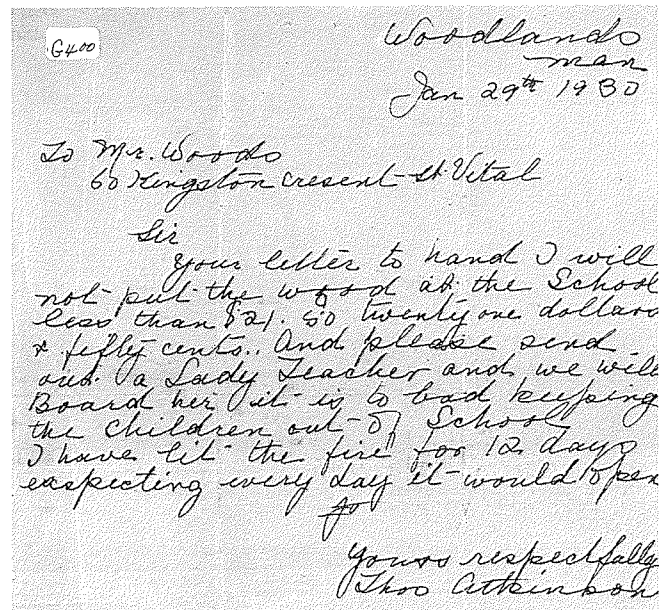 G400
Woodlands
Man
Jan 29th 1930
To Mr. Woods
60 Kingston Cresent St. Vital
Sir
Your letter to hand I will
not put the wood at the School
less than $21.50 twenty one dollars
& fifty cents.. And please send
out a Lady Teacher and we will
Board her it is to bad keeping
the children out of School
I have lit the fire for 12 days
exspecting every day it would open
Yours respectfully
Thos Atkinson